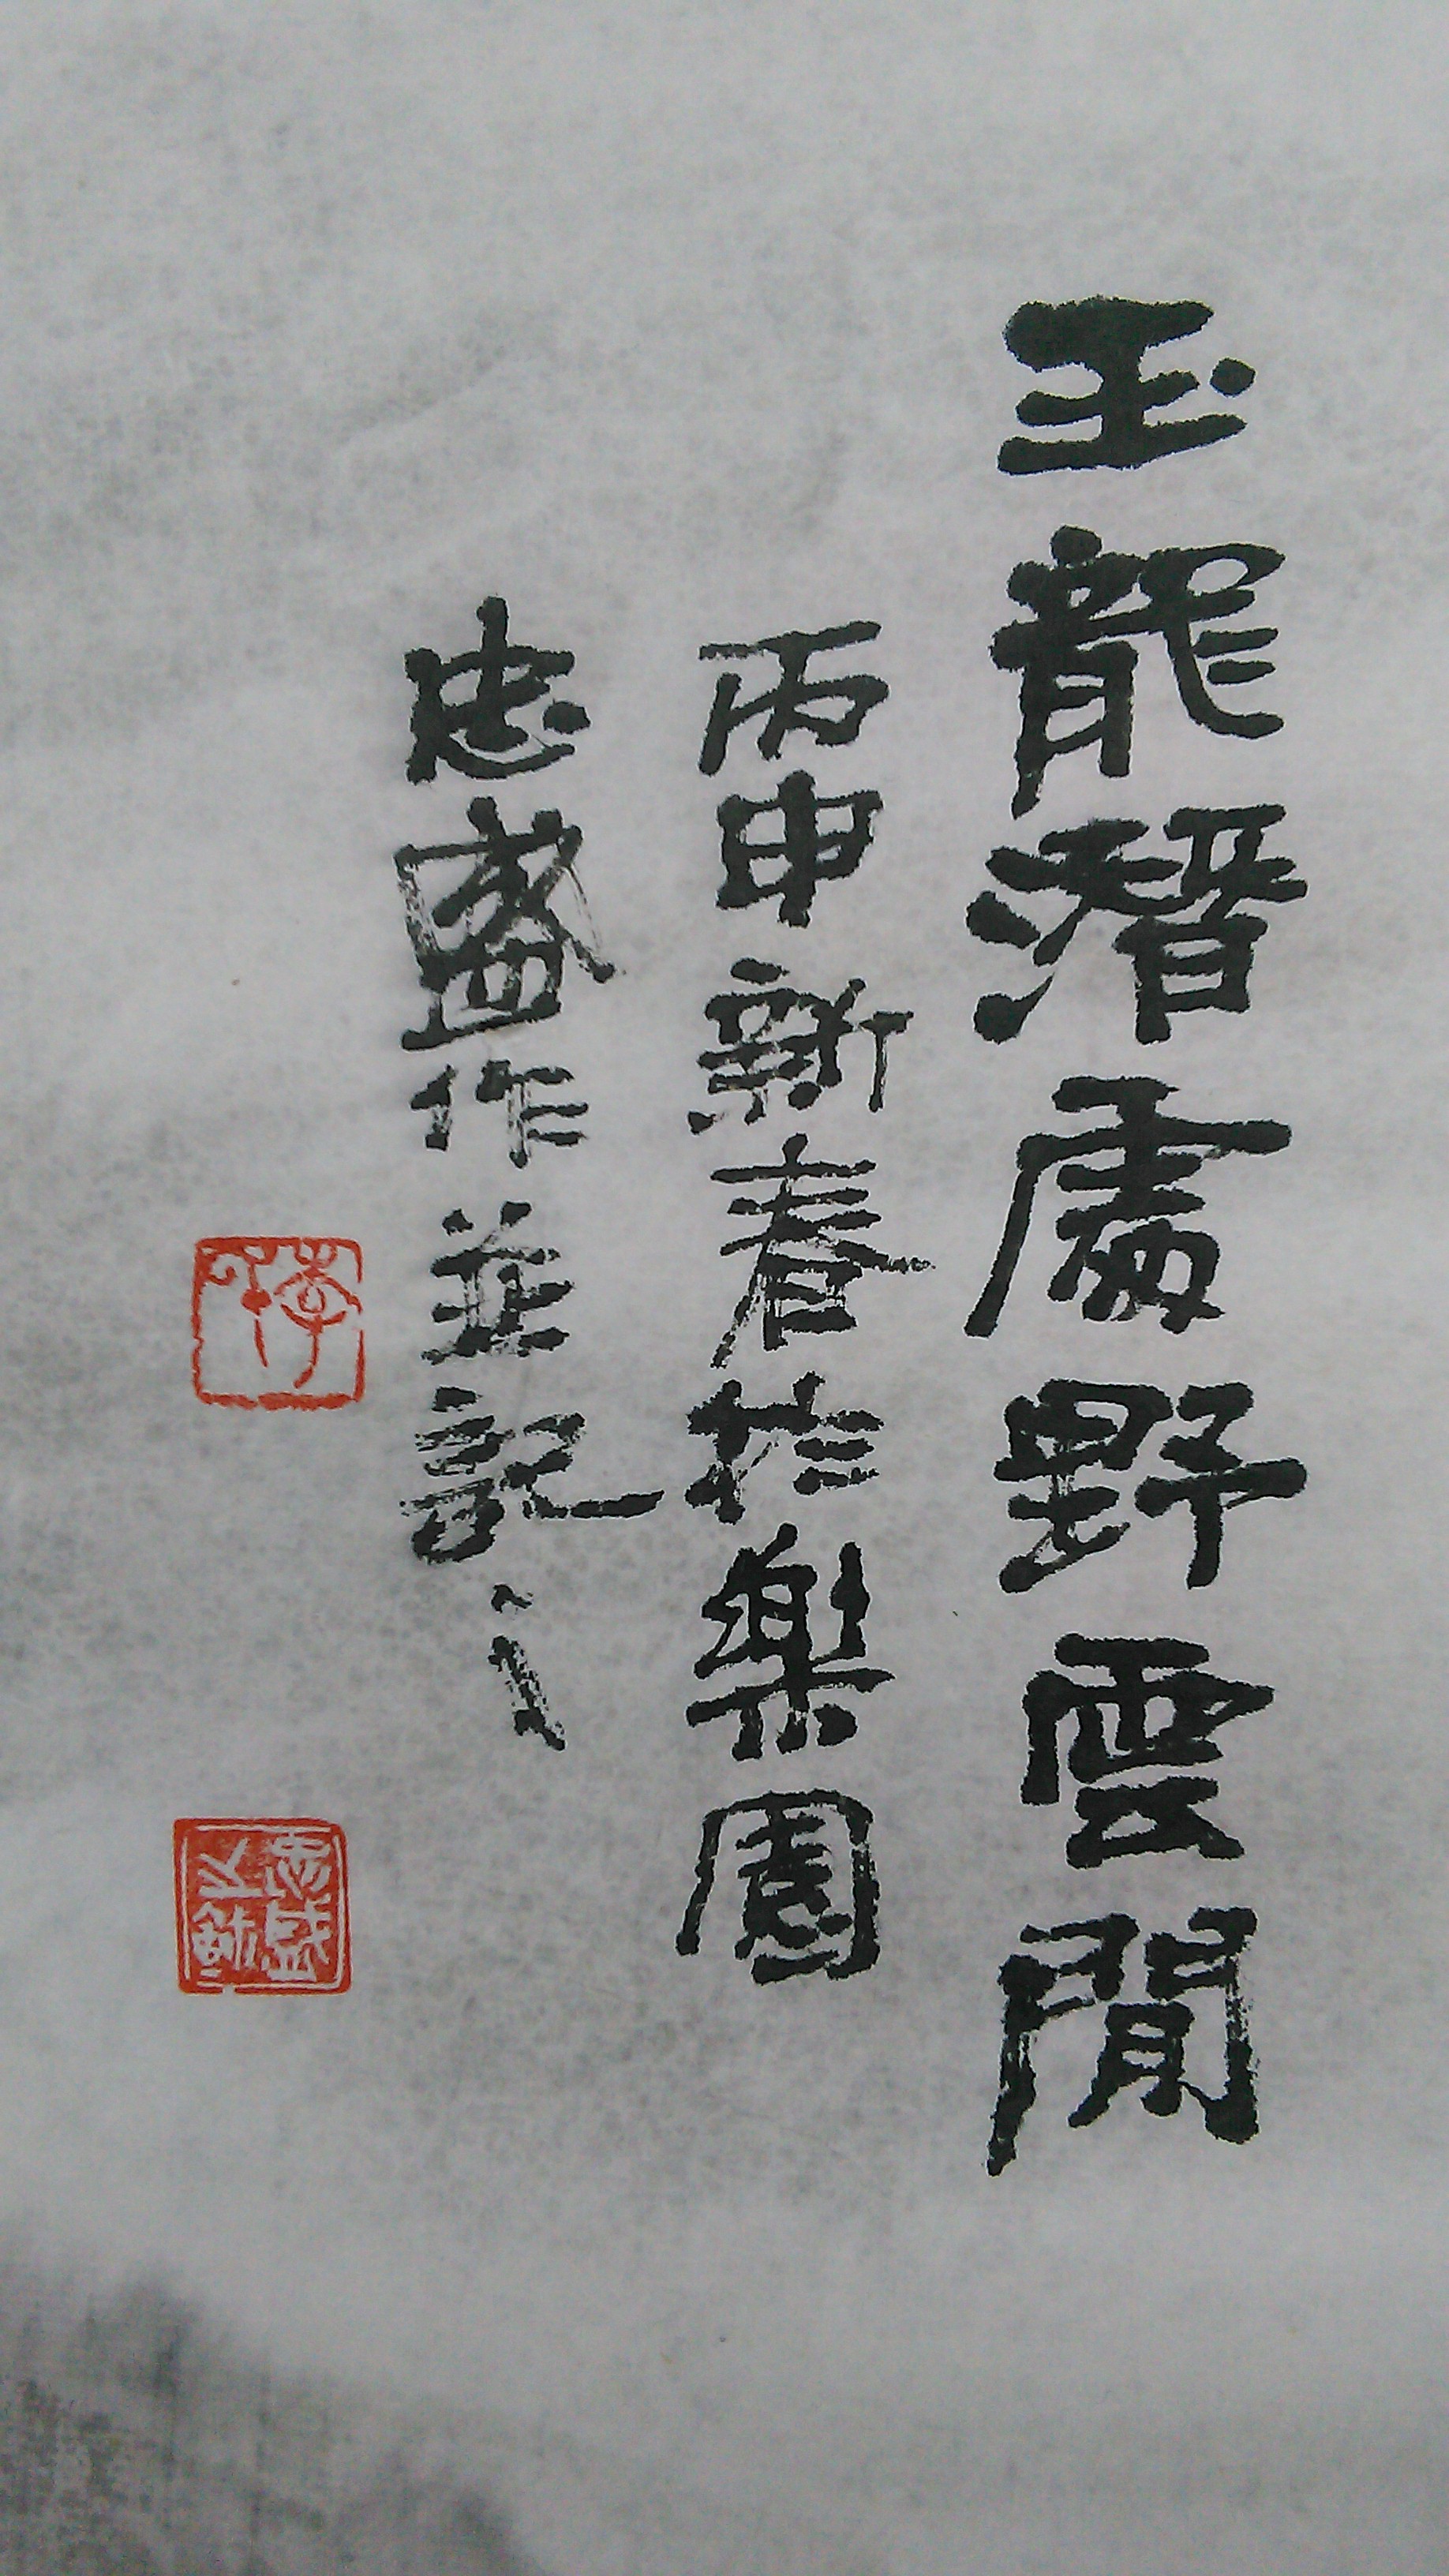 玉龍潛處野雲閒
丙申新春於樂園
忠盛作並記之
忠盛